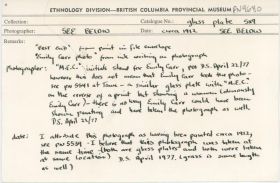 ETHNOLOGY DIVISION—BRITISH COLUMBIA PROVINCIAL MUSEUM PN9640
Collection Catalogue No.: glass plate 589
Photographer: SEE BELOW Date: circa 1912 SEE BELOW
Remarks:
from print in file envelope
"Emily Carr photo" from ink writing on photograph
photographer: "M.E.C." initials stand for Emily Carr, per D.S. April 22/77
however this does not mean that Emily Carr took the photo—
see pn 5541 at Tsane— a similar glass plate with "M.E.C."
on the reverse of a print but showing a woman (obviously
Emily Carr)— there is no way Emily Carr could have been
shown painting and have taken the photograph as well.
D.S. April 22/77
date: I allocate this photograph as having been painted circa 1912,
see pn 5559. I believe that this photograph was taken at
the same time (both are glass plates and both were taken
at same location) D.S. April 1977. (grass is same length
as well)